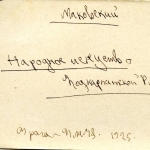 Маковский
Народное искусство
Подкарпатской Р.
Прага 1925.